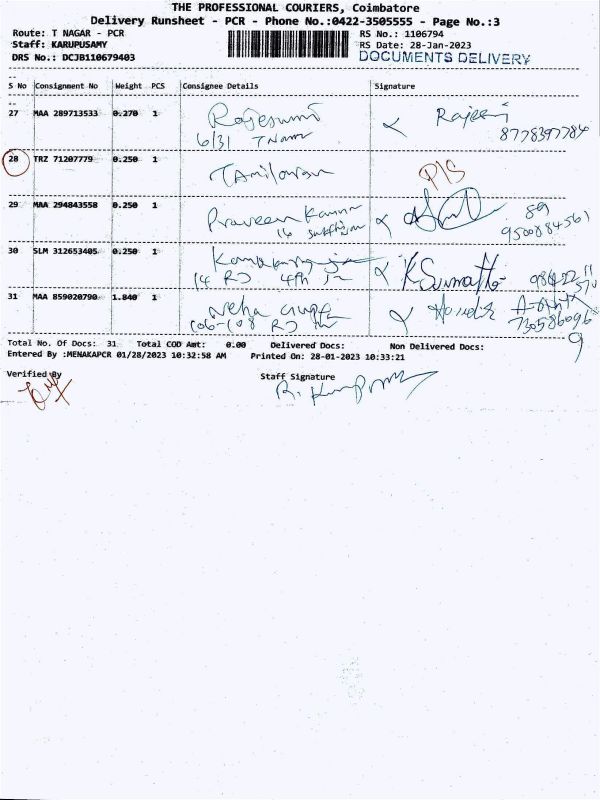 THE PROFESSIONAL COURIERS, Coimbatore
Delivery Runsheet - PCR - Phone No.:0422-3505555 - Page No.:3
Route: T NAGAR - PCR
Staff: KARUPUSAMY
DRS No.: DCJB110679403
RS No.: 1106794
RS Date: 28-Jan-2023
DOCUMENTS DELIVERY
S No Consignment No Weight PCS Consignee Details Signature
27 MAA 289713533 0.270 1 Rajesumi Rajeni
6/31 T Nagar 8778397784
28 TRZ 71207779 0.250 1 Tamilarasan P/S
29 MAA 294843558 0.250 1 Praveen Kumar 89
14 9500884561
30 SLM 312653405 0.250 1 K Sumathi
14 RJ 4th
31 MAA 859020790 1.840 1 Neha Gupta
106-108 RJ
Total No. Of Docs: 31 Total COD Amt: 0.00 Delivered Docs: Non Delivered Docs:
Entered By :MENAKAPCR 01/28/2023 10:32:58 AM Printed On: 28-01-2023 10:33:21
Verified By Staff Signature